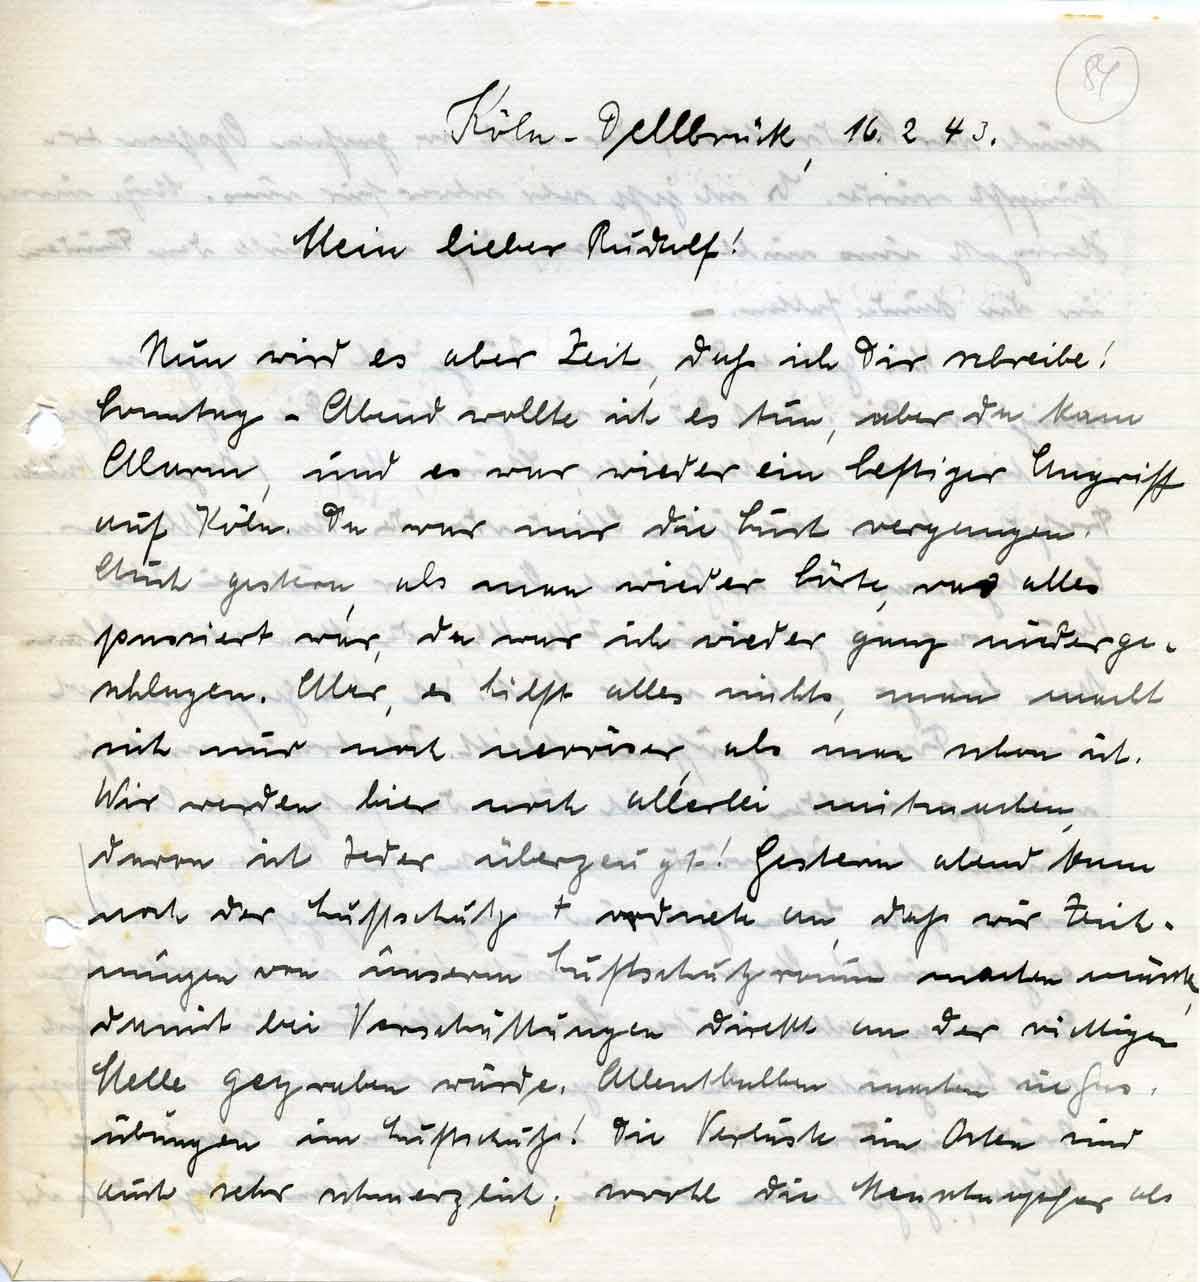 84
Köln-Dellbrück, 16. 2. 43.
Mein lieber Rudolf!
Nun wird es aber Zeit, daß ich Dir schreibe!
Sonntag-Abend wollte ich es tun, aber da kam
Alarm, und es war wieder ein heftiger Angriff
auf Köln. Da war mir die Lust vergangen.
Auch gestern, als man wieder hörte, was alles
passiert war, da war ich wieder ganz niederge-
schlagen. Aber, es hilft alles nichts, man macht
sich nur noch nervöser, als man schon ist.
Wir werden hier noch allerlei mitmachen,
davon ist Jeder überzeugt! Gestern abend kam
noch der Luftschutz + ordnete an, daß wir Zeich-
nungen von unserm Luftschutzraum machen müßten,
damit bei Verschüttungen direkt an der richtigen
Stelle gegraben würde. Allenthalben machen sie Gas-
übungen im Luftschutz! Die Verluste im Osten sind
auch sehr schmerzlich; sowohl die Menschenopfer als